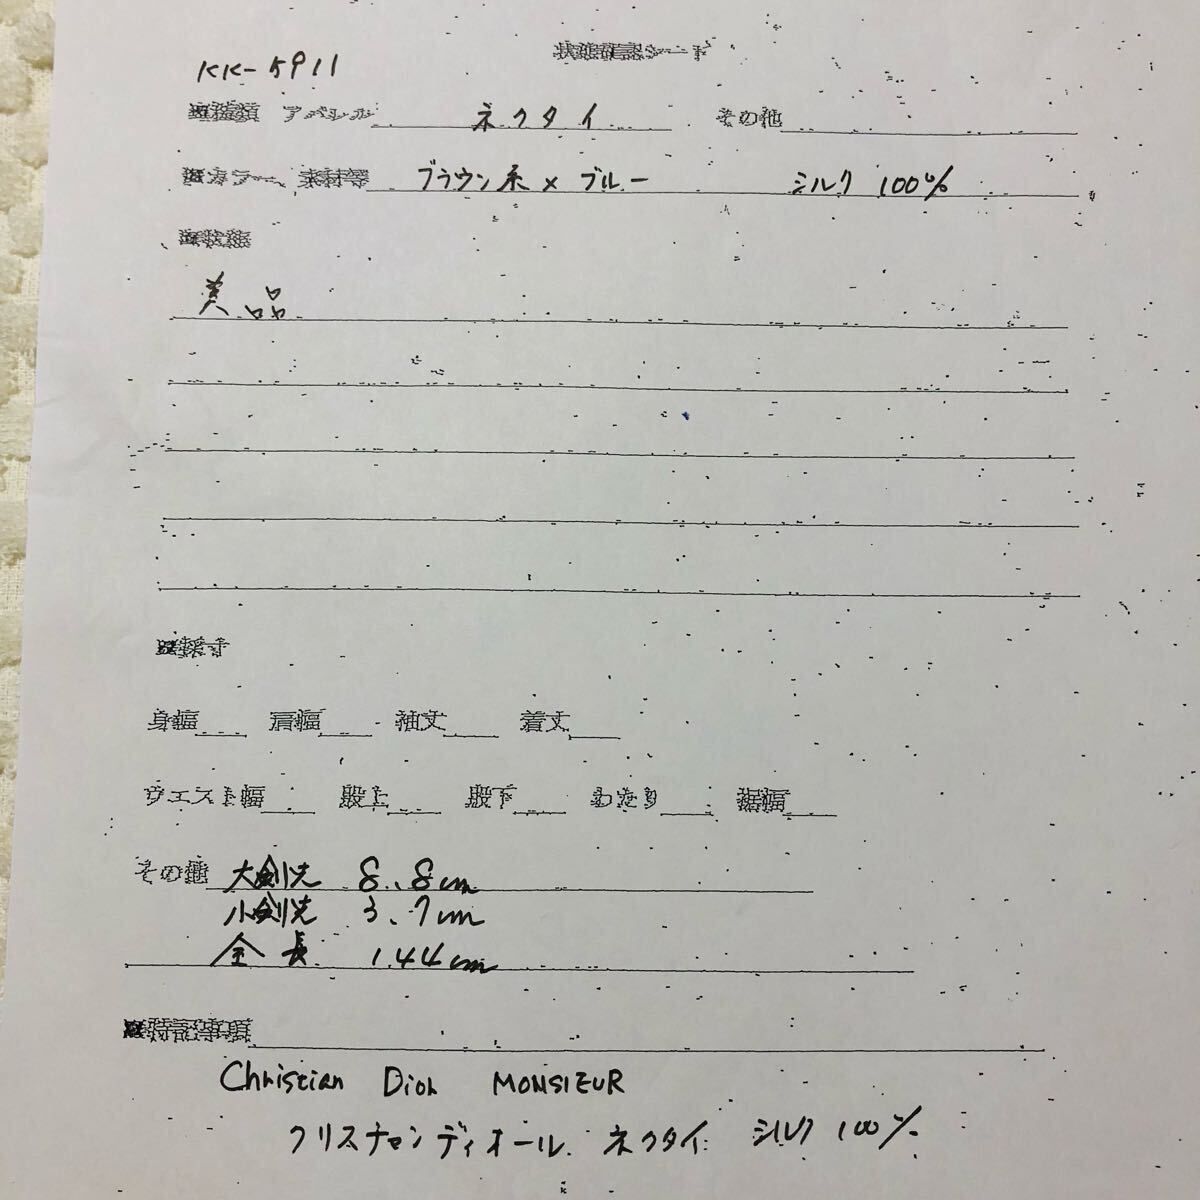 状態確認シート
KK-5911
■種類 アパレル ネクタイ その他
■カラー、素材等 ブラウン系×ブルー シルク 100%
■状態
美品
■採寸
身幅 肩幅 袖丈 着丈
ウエスト幅 股上 股下 わたり 裾幅
その他 大剣先 8.8cm
小剣先 3.7cm
全長 144cm
■特記事項
Christian Dior MONSIEUR
クリスチャンディオール ネクタイ シルク 100%